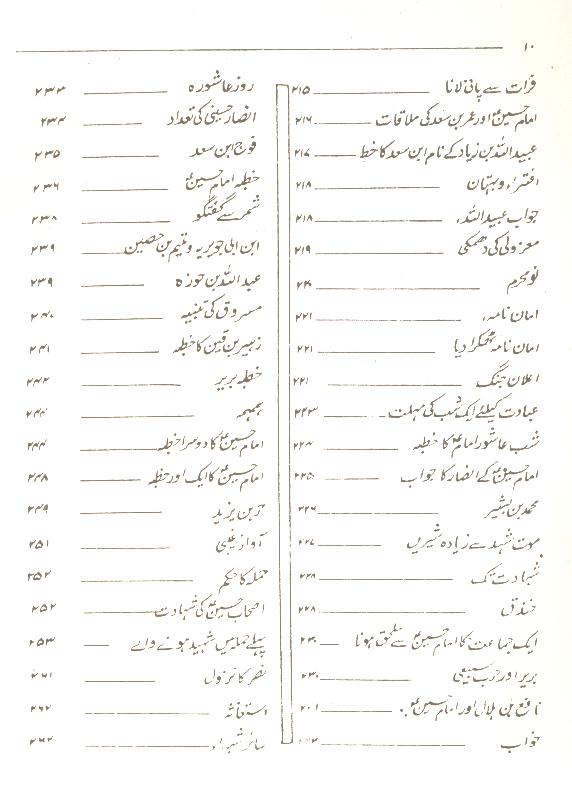 ۱۰
فرات سے پانی لانا ۲۱۵
امام حسینؑ اور عمر بن سعد کی ملاقات ۲۱۶
عبید اللہ بن زیاد کے نام ابن سعد کا خط ۲۱۷
افتراء و بہتان ۲۱۸
جواب عبید اللہ ۲۱۸
معزولی کی دھمکی ۲۱۹
نو محرم
امان نامہ ۲۲۱
امان نامہ ٹھکرا دیا ۲۲۱
اعلان جنگ ۲۲۱
عبادت کیلئے ایک شب کی مہلت ۲۲۳
شب عاشور امامؑ کا خطبہ ۲۲۴
امام حسینؑ کے انصار کا جواب ۲۲۵
محمد بن بشیر ۲۲۶
موت شہد سے زیادہ شیریں ۲۲۷
شہادت تک ۲۲۸
خندق ۲۲۸
ایک جماعت کا امام حسینؑ سے ملحق ہونا ۲۳۰
بریر اور حرب سبیعی ۲۳۰
نافع بن ہلال اور امام حسینؑ
خواب ۲۳۲
روز عاشورہ ۲۳۳
انصار حسینی کی تعداد ۲۳۴
فوج ابن سعد ۲۳۵
خطبہ امام حسینؑ ۲۳۶
شمر سے گفتگو ۲۳۸
ابن ابی جویریہ و تمیم بن حصین ۲۳۹
عبد اللہ بن حوزہ ۲۳۹
مسروق کی تنبیہ ۲۴۰
زہیر بن قین کا خطبہ ۲۴۱
خطبہ بریر ۲۴۲
ہمہمہ ۲۴۴
امام حسینؑ کا دوسرا خطبہ ۲۴۴
امام حسینؑ کا ایک اور خطبہ ۲۴۸
حر بن یزید ۲۴۹
آواز غیبی ۲۵۱
حملہ کا حکم ۲۵۲
اصحاب حسینؑ کی شہادت ۲۵۲
پہلے حملہ میں شہید ہونے والے ۲۵۳
نصر کا نزول ۲۶۱
استغاثہ ۲۶۲
سائر شہداء ۲۶۲